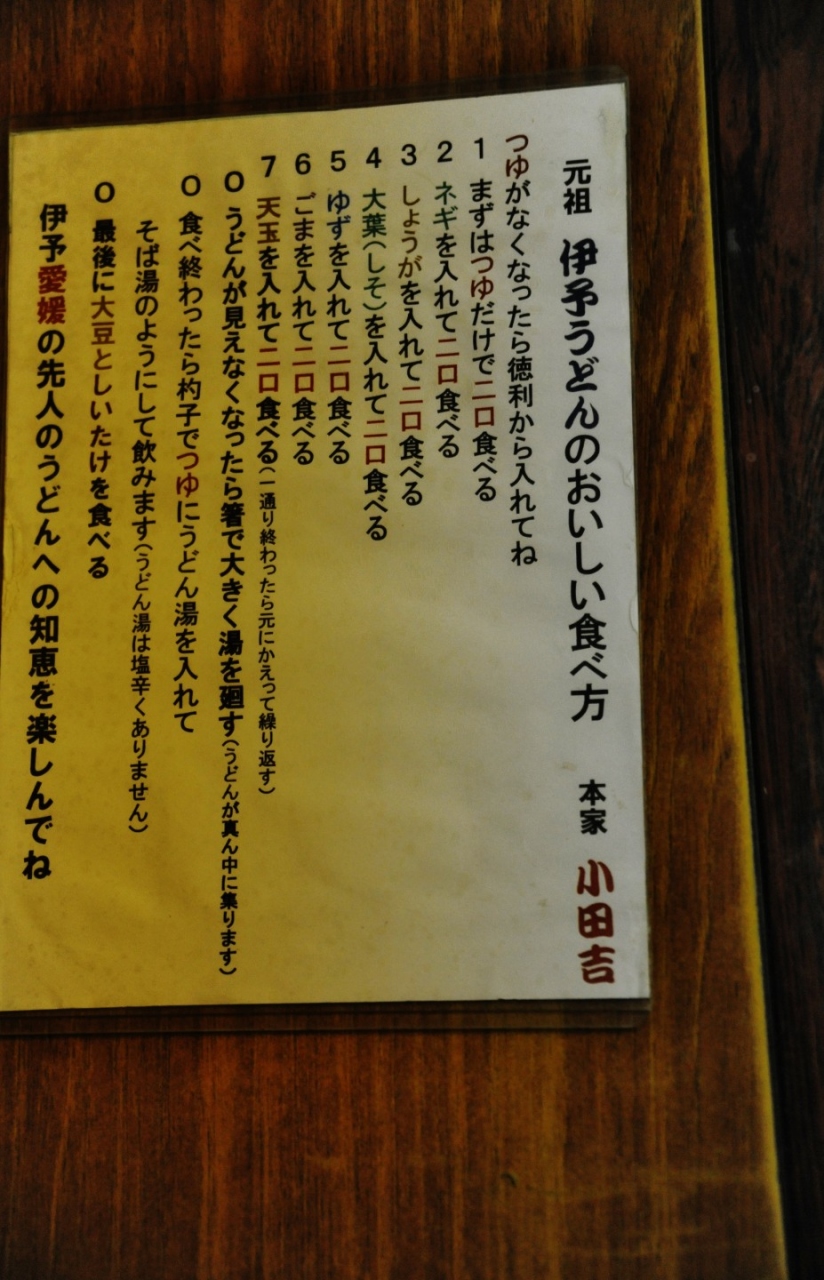 元祖 伊予うどんのおいしい食べ方 本家 小田吉
つゆがなくなったら徳利から入れてね
1 まずはつゆだけで二口食べる
2 ネギを入れて二口食べる
3 しょうがを入れて二口食べる
4 大葉(しそ)を入れて二口食べる
5 ゆずを入れて二口食べる
6 ごまを入れて二口食べる
7 天玉を入れて二口食べる(一通り終わったら元にかえって繰り返す)
○ うどんが見えなくなったら箸で大きく湯を廻す(うどんが真ん中に集ります)
○ 食べ終わったら杓子でつゆにうどん湯を入れて
そば湯のようにして飲みます(うどん湯は塩辛くありません)
○ 最後に大豆としいたけを食べる
伊予愛媛の先人のうどんへの知恵を楽しんでね